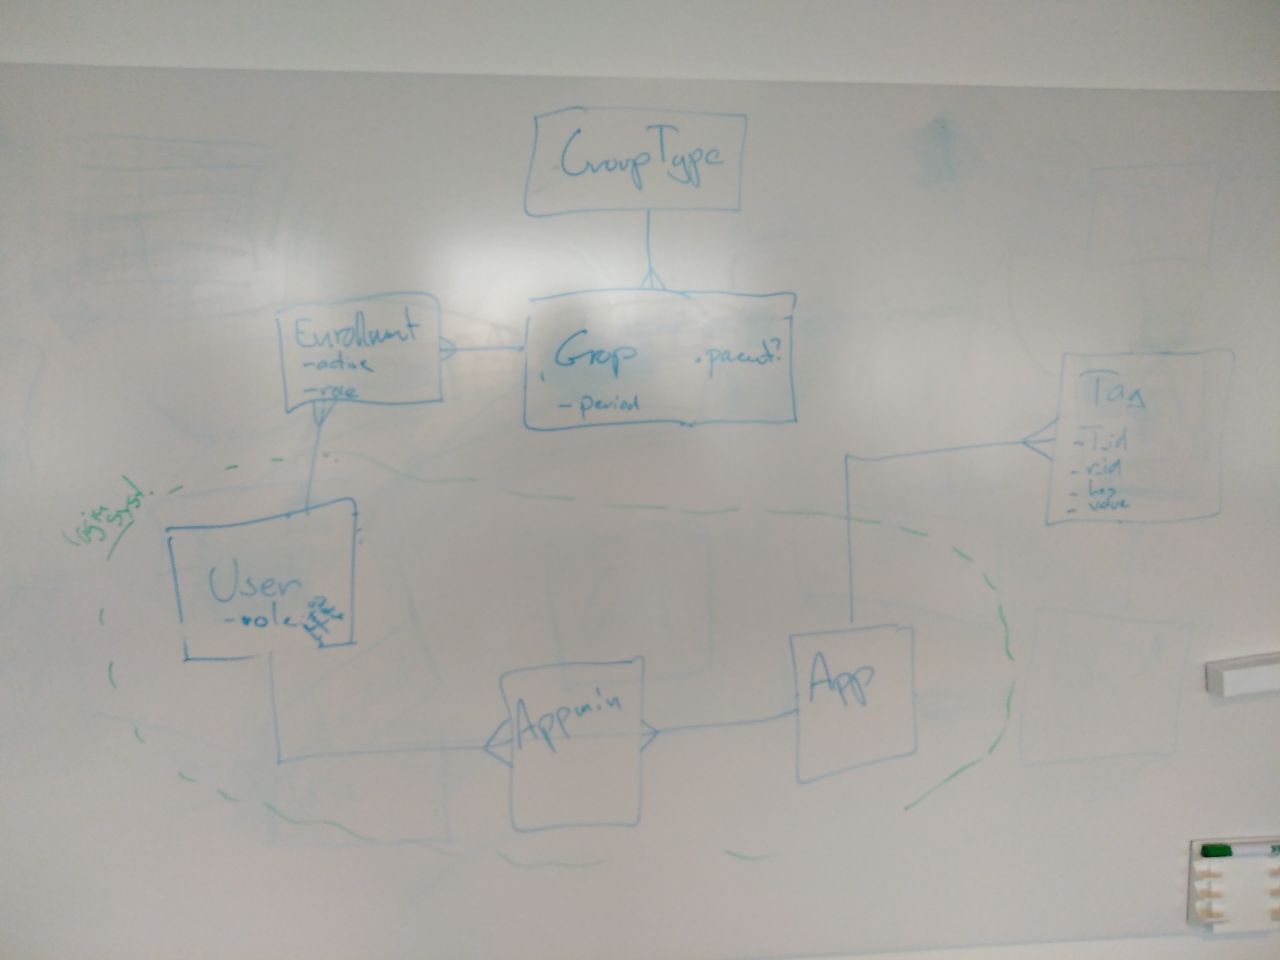 GroupType
Enrollment
-active
-role
Group
.parent?
- period
Tag
-T_id
-r_id
- key
- value
login
syst
User
-role:
Appmin
App